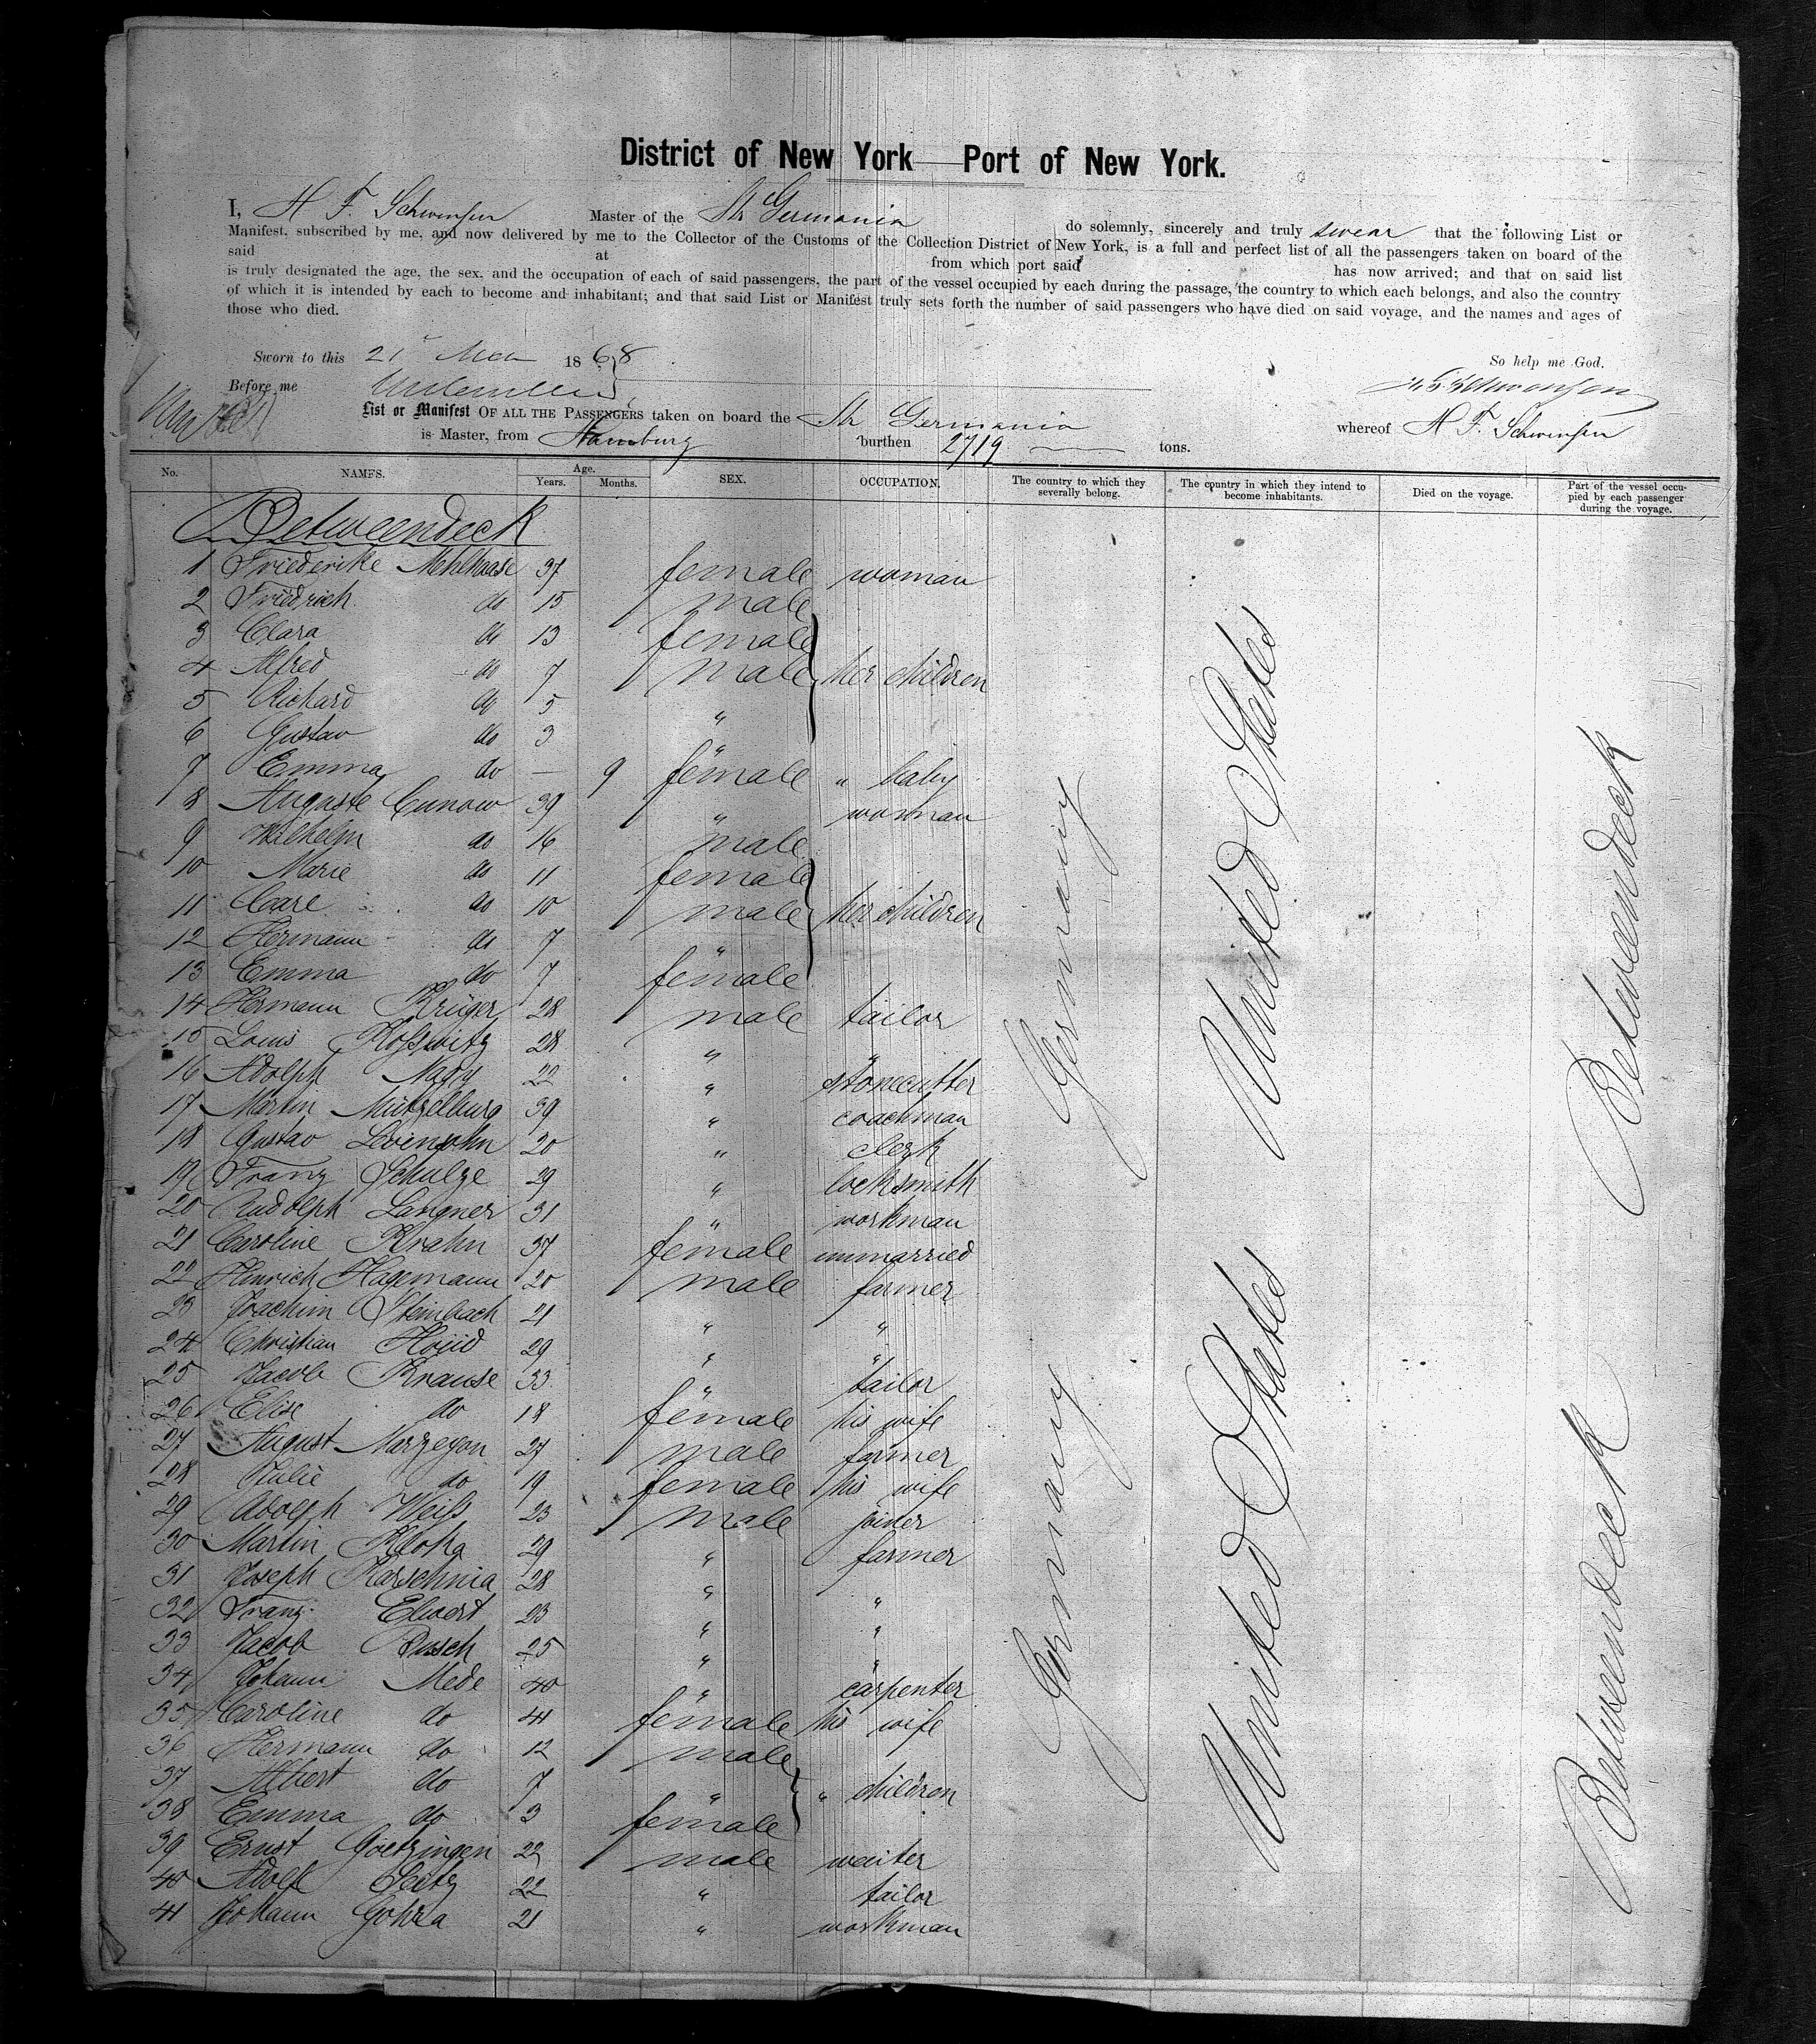 District of New York Port of New York.
I, H F. Schwensen Master of the Str Germania do solemnly, sincerely and truly swear that the following List or
Manifest, subscribed by me, and now delivered by me to the Collector of the Customs of the Collection District of New York, is a full and perfect list of all the passengers taken on board of the
said at from which port said has now arrived; and that on said list
is truly designated the age, the sex, and the occupation of each of said passengers, the part of the vessel occupied by each during the passage, the country to which each belongs, and also the country
of which it is intended by each to become and inhabitant; and that said List or Manifest truly sets forth the number of said passengers who have died on said voyage, and the names and ages of
those who died.
Sworn to this 21 1868 So help me God.
Before me
List or Manifest OF ALL THE PASSENGERS taken on board the Str Germania whereof H F. Schwensen
is Master, from Hamburg burthen 2719 tons.
No. NAMES. Age. Years. Months. SEX. OCCUPATION. The country to which they severally belong. The country in which they intend to become inhabitants. Died on the voyage. Part of the vessel occupied by each passenger during the voyage.
Betweendeck
1 Friederike Mehlhaase 37 female woman
2 Friedrich do 15 male
3 Clara do 13 female
4 Alfred do 7 male her children
5 Richard do 5 "
6 Gustav do 3 "
7 Emma do — 9 female " baby
8 Auguste Cunow 39 " woman
9 Wilhelm do 16 male
10 Marie do 11 female
11 Carl do 10 male her children
12 Hermann do 7 "
13 Emma do 7 female
14 Hermann Krüger 28 male tailor
15 Louis Kosswitz 28 " "
16 Adolph Nagy 22 " stonecutter
17 Martin Mützelburg 39 " coachman
18 Gustav Levensohn 20 " clerk
19 Franz Schulze 29 " locksmith
20 Rudolph Langner 31 " workman
21 Caroline Krahn 37 female unmarried
22 Hinrich Hagemann 20 male farmer
23 Joachim Steinbach 21 " "
24 Christian 29 " "
25 Jacob Krause 33 " tailor
26 Elise do 18 female his wife
27 August Marzeyon 27 male farmer
28 Julie do 19 female his wife
29 Adolph Weiss 23 male joiner
30 Martin Kloka 29 " farmer
31 Joseph Karschnia 28 " "
32 Franz Elwert 23 " "
33 Jacob Busch 25 " "
34 Johann Mede 40 " carpenter
35 Caroline do 41 female his wife
36 Hermann do 12 male
37 Albert do 7 " " children
38 Emma do 3 female
39 Ernst Goetzingen 22 male waiter
40 Adolf Seitz 22 " tailor
41 Johann Gohra 21 " workman
Germany
Germany
United States
United States
Betweendeck
Betweendeck